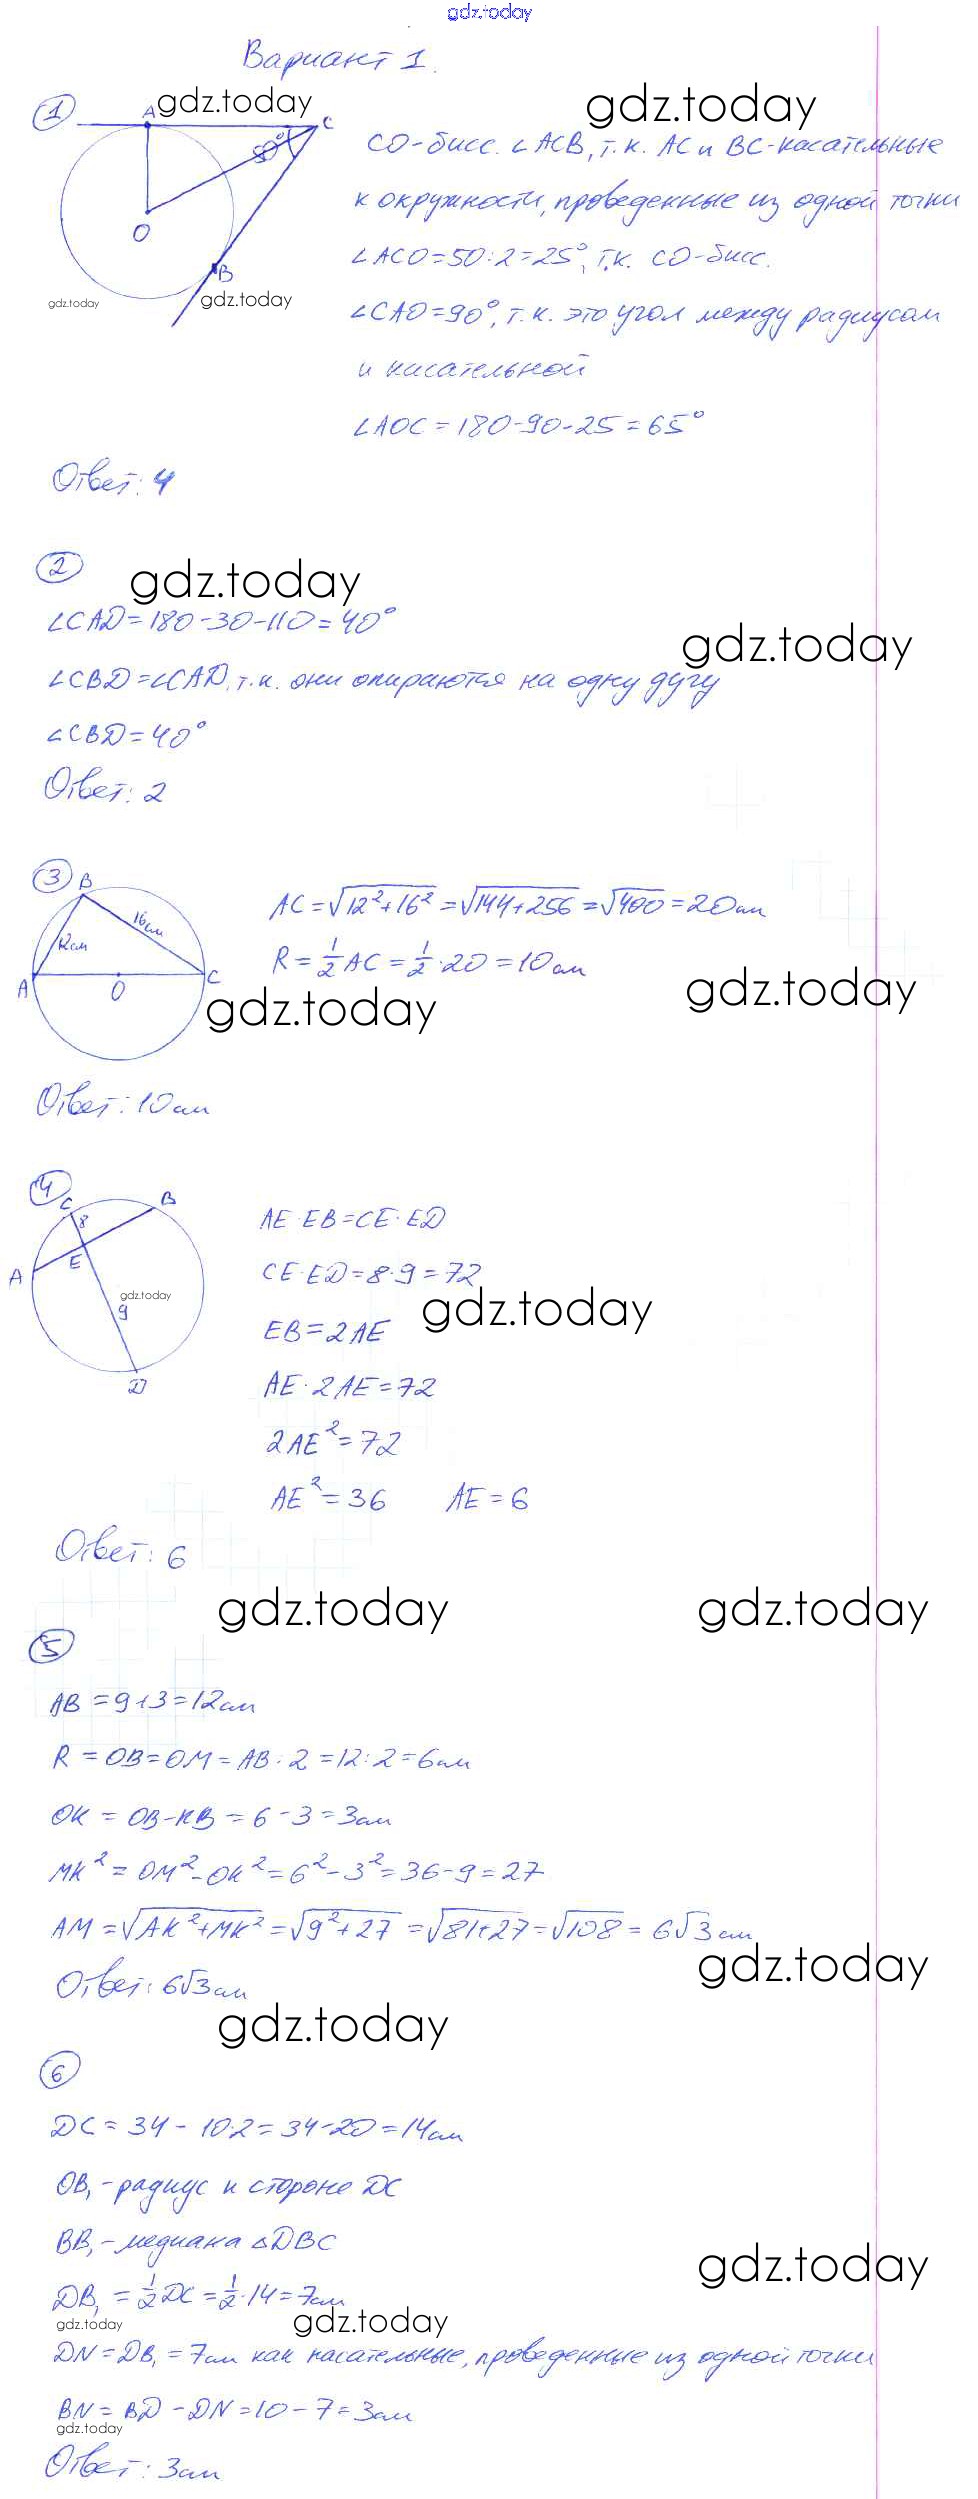 gdz.today
Вариант 1.
1
gdz.today
gdz.today
A
C
50°
O
B
gdz.today
gdz.today
CO-бисс. ∠ACB, т.к. AC и BC-касательные
к окружности, проведенные из одной точки
∠ACO=50:2=25°, т.к. CO-бисс.
∠CAO=90°, т.к. это угол между радиусом
и касательной
∠AOC=180-90-25=65°
Ответ: 4
2
gdz.today
∠CAD=180-30-110=40°
gdz.today
∠CBD=∠CAD, т.к. они опираются на одну дугу
∠CBD=40°
Ответ: 2
3
B
12см
16см
A
O
C
AC=√12²+16²=√144+256=√400=20см
R=½AC=½·20=10см
gdz.today
gdz.today
Ответ: 10см
4
C
B
8
E
A
gdz.today
9
D
AE·EB=CE·ED
CE·ED=8·9=72
gdz.today
EB=2AE
AE·2AE=72
2AE²=72
AE²=36 AE=6
Ответ: 6
gdz.today
gdz.today
5
AB=9+3=12см
R=OB=OM=AB:2=12:2=6см
OK=OB-KB=6-3=3см
MK²=OM²-OK²=6²-3²=36-9=27
AM=√AK²+MK²=√9²+27=√81+27=√108=6√3см
gdz.today
Ответ: 6√3см
gdz.today
6
DC=34-10·2=34-20=14см
OB₁-радиус к стороне DC
BB₁-медиана △DBC
gdz.today
DB₁=½DC=½·14=7см
gdz.today
gdz.today
DN=DB₁=7см как касательные, проведенные из одной точки
BN=BD-DN=10-7=3см
gdz.today
Ответ: 3см